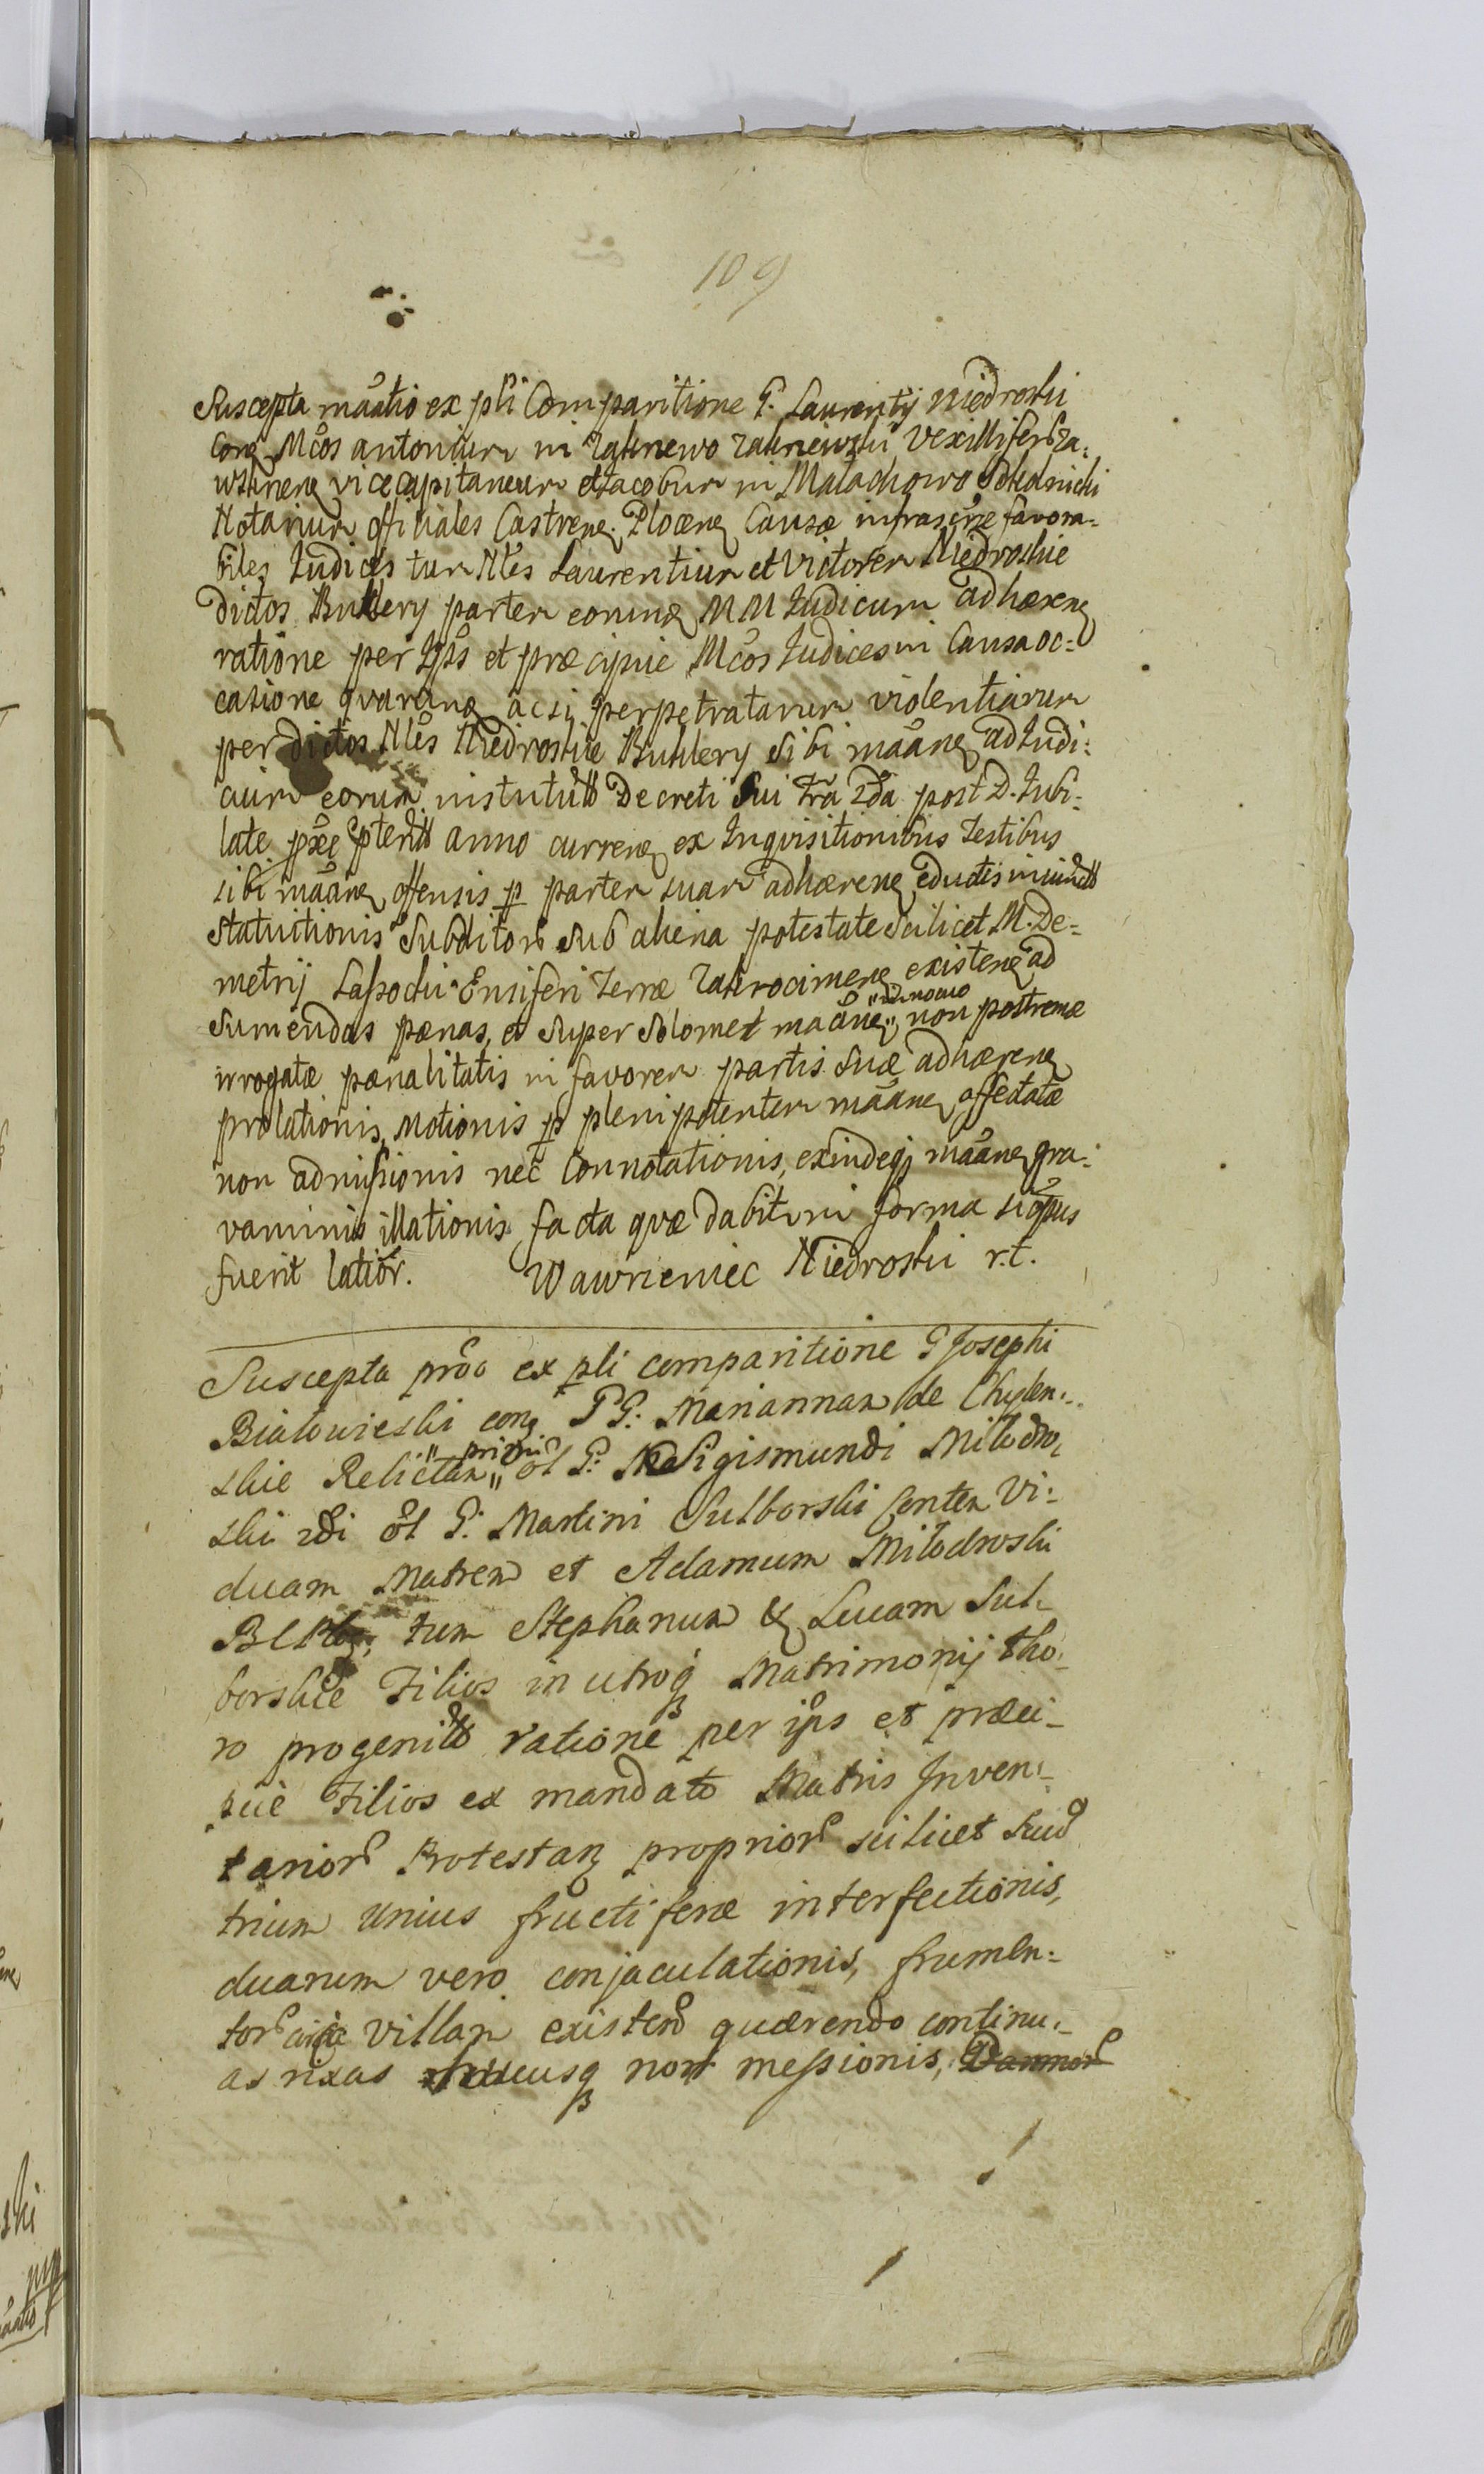 109
Suscepta mãatio ex pñli Comparitione G. Laurentij Niedroski
Conq Mcos antonium in Zahnewo Vexilliferũ Za:
wskrnenq vicecapitaneum et Jacobum in Małachowo
Notarium officiales Castrenq. Plocenq Causæ infrascrᵉ favora=
biles Judices tum Nles Laurentium et Victorem Niedroskie
Dictos Buklery partem eorunq MM Judicum adhærenq
ratione per Ipsˢ et præcipue Mcos Judices in Causa oc:
casione qvarunq acsi perpetratarum violentiarum
per dictos Nles Niedroskie Buklery Sibi mãanq ad Judi:
cium eorum Decreti Sui fra 2da post D. Jubi:
late anno currenq ex Inqvisitionibus Testibus
sibi mãanq offensis p partem suam adhærenq eductis
Statuitionis Subditorũ Sub aliena potestate Scilicet M. De=
metrij Lassocki Ensiferi Terræ Zakrocimenq existenq ad
Sumendas pænas, et Super Solomet mãanq "denovo" non postremæ
irrogatæ pænalitatis in favorem partis Suæ adhærenq
prolationis, Motionis p plenipotentem mãanq affectatæ
non admissionis nec Connotationis, exindeqz mãanq gra:
vaminis illationis facta qvæ dabitur in forma si opus
fuerit latior. Wawrzeniec Niedroski r.t.
Suscepta prõo ex pli comparitione G Josephi
Białowieski conq GG: Mariannam de Chylen:
skie Relictam "primi" ol G: Sigismundi Miłodro,
ski 2di ol G: Martini Sulborski Conten Vi:
duam Matrem et Adamum Miłodroski
tum Stephanum & Lucam Sul:
borskie Filios in utroq Matrimonij tho:
ro progenitõs ratione per ipˢ et præci:
pue Filios ex mandato Matris Inven:
tariorũ Protestanq propriorũ scilicet Suũ
trium unius fructiferæ interfectionis,
duarum vero conjaculationis, frumen:
torũ circa Villam existenũ quærendo continu:
as rixas non messionis, Damnorũ